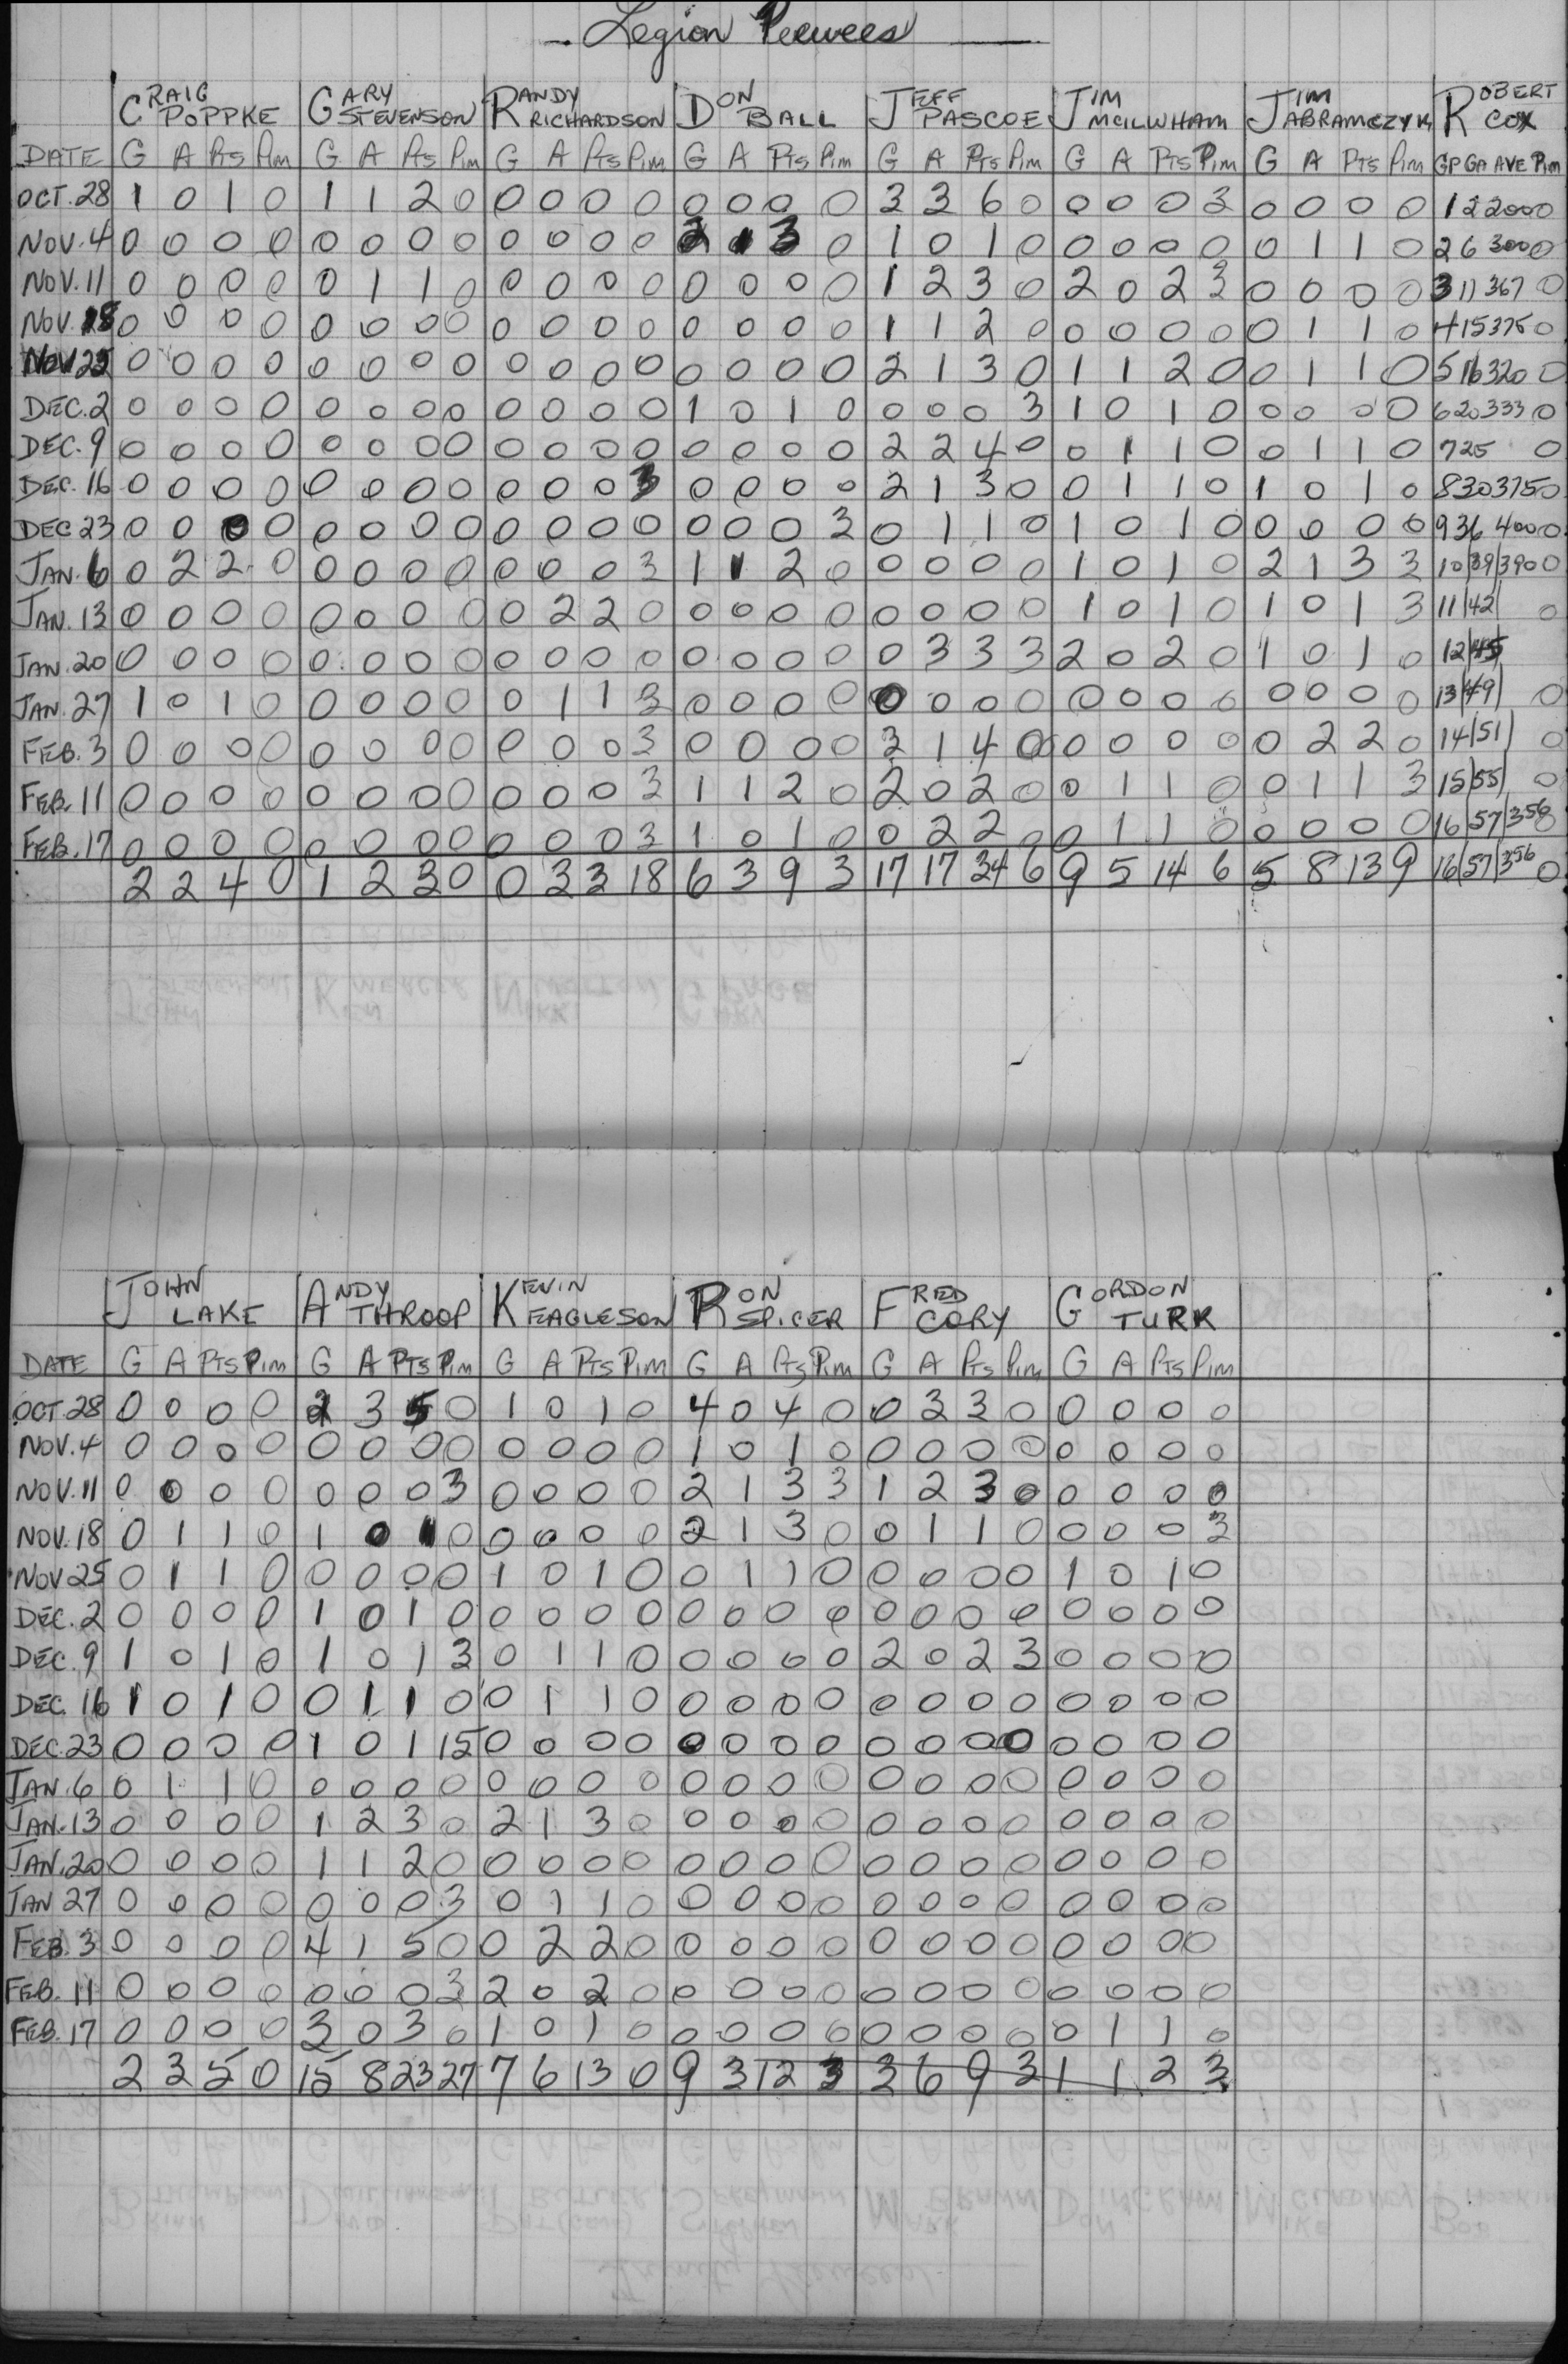 Legion Peewees
CRAIG POPPKE GARY STEVENSON RANDY RICHARDSON DON BALL JEFF PASCOE JIM MCILWHAM JIM ABRAMCZYK ROBERT COX
DATE G A Pts Pim G A Pts Pim G A Pts Pim G A Pts Pim G A Pts Pim G A Pts Pim G A Pts Pim GP GA AVE Pim
OCT. 28 1 0 1 0 1 1 2 0 0 0 0 0 0 0 0 0 3 3 6 0 0 0 0 3 0 0 0 0 1 2 2000
NOV. 4 0 0 0 0 0 0 0 0 0 0 0 0 2 1 3 0 1 0 1 0 0 0 0 0 0 1 1 0 2 6 300 0
NOV. 11 0 0 0 0 0 1 1 0 0 0 0 0 0 0 0 0 1 2 3 0 2 0 2 3 0 0 0 0 3 11 367 0
NOV. 18 0 0 0 0 0 0 0 0 0 0 0 0 0 0 0 0 1 1 2 0 0 0 0 0 0 1 1 0 4 15 375 0
NOV 25 0 0 0 0 0 0 0 0 0 0 0 0 0 0 0 0 2 1 3 0 1 1 2 0 0 1 1 0 5 16 320 0
DEC. 2 0 0 0 0 0 0 0 0 0 0 0 0 1 0 1 0 0 0 0 3 1 0 1 0 0 0 0 0 6 20 333 0
DEC. 9 0 0 0 0 0 0 0 0 0 0 0 0 0 0 0 0 2 2 4 0 0 1 1 0 0 1 1 0 7 25 0
DEC. 16 0 0 0 0 0 0 0 0 0 0 0 3 0 0 0 0 2 1 3 0 0 1 1 0 1 0 1 0 8 30 375 0
DEC 23 0 0 0 0 0 0 0 0 0 0 0 0 0 0 0 3 0 1 1 0 1 0 1 0 0 0 0 0 9 36 400 0
JAN. 6 0 2 2 0 0 0 0 0 0 0 0 3 1 1 2 0 0 0 0 0 1 0 1 0 2 1 3 3 10/39/390 0
JAN. 13 0 0 0 0 0 0 0 0 0 2 2 0 0 0 0 0 0 0 0 0 1 0 1 0 1 0 1 3 11/42/ 0
JAN. 20 0 0 0 0 0 0 0 0 0 0 0 0 0 0 0 0 0 3 3 3 2 0 2 0 1 0 1 0 12/45
JAN. 27 1 0 1 0 0 0 0 0 0 1 1 3 0 0 0 0 0 0 0 0 0 0 0 0 0 0 0 0 13/49/ 0
FEB. 3 0 0 0 0 0 0 0 0 0 0 0 3 0 0 0 0 3 1 4 0 0 0 0 0 0 2 2 0 14/51/ 0
FEB. 11 0 0 0 0 0 0 0 0 0 0 0 3 1 1 2 0 2 0 2 0 0 1 1 0 0 1 1 3 15/55/ 0
FEB. 17 0 0 0 0 0 0 0 0 0 0 0 3 1 0 1 0 0 2 2 0 0 1 1 0 0 0 0 0 16/57/356 0
2 2 4 0 1 2 3 0 0 3 3 18 6 3 9 3 17 17 34 6 9 5 14 6 5 8 13 9 16/57/356 0
JOHN LAKE ANDY THROOP KEVIN EAGLESON RON SPICER FRED CORY GORDON TURK
DATE G A Pts Pim G A Pts Pim G A Pts Pim G A Pts Pim G A Pts Pim G A Pts Pim
OCT 28 0 0 0 0 2 3 5 0 1 0 1 0 4 0 4 0 0 3 3 0 0 0 0 0
NOV. 4 0 0 0 0 0 0 0 0 0 0 0 0 1 0 1 0 0 0 0 0 0 0 0 0
NOV. 11 0 0 0 0 0 0 0 3 0 0 0 0 2 1 3 3 1 2 3 0 0 0 0 0
NOV. 18 0 1 1 0 1 0 1 0 0 0 0 0 2 1 3 0 0 1 1 0 0 0 0 3
NOV 25 0 1 1 0 0 0 0 0 1 0 1 0 0 1 1 0 0 0 0 0 1 0 1 0
DEC. 2 0 0 0 0 1 0 1 0 0 0 0 0 0 0 0 0 0 0 0 0 0 0 0 0
DEC. 9 1 0 1 0 1 0 1 3 0 1 1 0 0 0 0 0 2 0 2 3 0 0 0 0
DEC. 16 1 0 1 0 0 1 1 0 0 1 1 0 0 0 0 0 0 0 0 0 0 0 0 0
DEC. 23 0 0 0 0 1 0 1 15 0 0 0 0 0 0 0 0 0 0 0 0 0 0 0 0
JAN. 6 0 1 1 0 0 0 0 0 0 0 0 0 0 0 0 0 0 0 0 0 0 0 0 0
JAN. 13 0 0 0 0 1 2 3 0 2 1 3 0 0 0 0 0 0 0 0 0 0 0 0 0
JAN. 20 0 0 0 0 1 1 2 0 0 0 0 0 0 0 0 0 0 0 0 0 0 0 0 0
JAN 27 0 0 0 0 0 0 0 3 0 1 1 0 0 0 0 0 0 0 0 0 0 0 0 0
FEB. 3 0 0 0 0 4 1 5 0 0 2 2 0 0 0 0 0 0 0 0 0 0 0 0 0
FEB. 11 0 0 0 0 0 0 0 3 2 0 2 0 0 0 0 0 0 0 0 0 0 0 0 0
FEB. 17 0 0 0 0 3 0 3 0 1 0 1 0 0 0 0 0 0 0 0 0 0 1 1 0
2 3 5 0 15 8 23 27 7 6 13 0 9 3 12 3 3 6 9 3 1 1 2 3